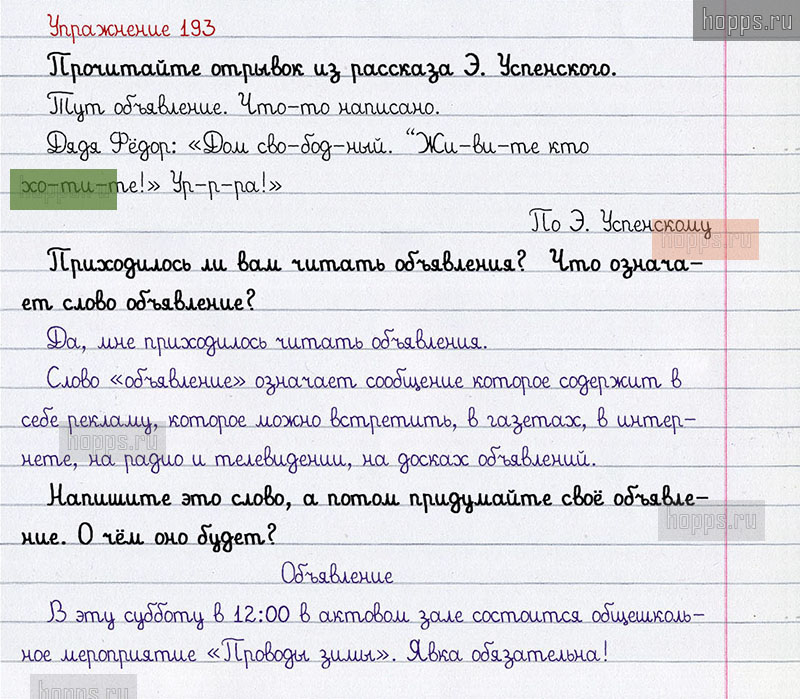 Упражнение 193
hopps.ru
Прочитайте отрывок из рассказа Э. Успенского.
Тут объявление. Что-то написано.
Дядя Фёдор: «Дом сво-бод-ный. “Жи-ви-те кто
хо-ти-те!» Ур-р-ра!»
По Э. Успенскому
hopps.ru
Приходилось ли вам читать объявления? Что означа-
ет слово объявление?
Да, мне приходилось читать объявления.
Слово «объявление» означает сообщение которое содержит в
себе рекламу, которое можно встретить, в газетах, в интер-
hopps.ru
нете, на радио и телевидении, на досках объявлений.
Напишите это слово, а потом придумайте своё объявле-
hopps.ru
ние. О чём оно будет?
Объявление
В эту субботу в 12:00 в актовом зале состоится общешколь-
ное мероприятие «Проводы зимы». Явка обязательна!
hopps.ru